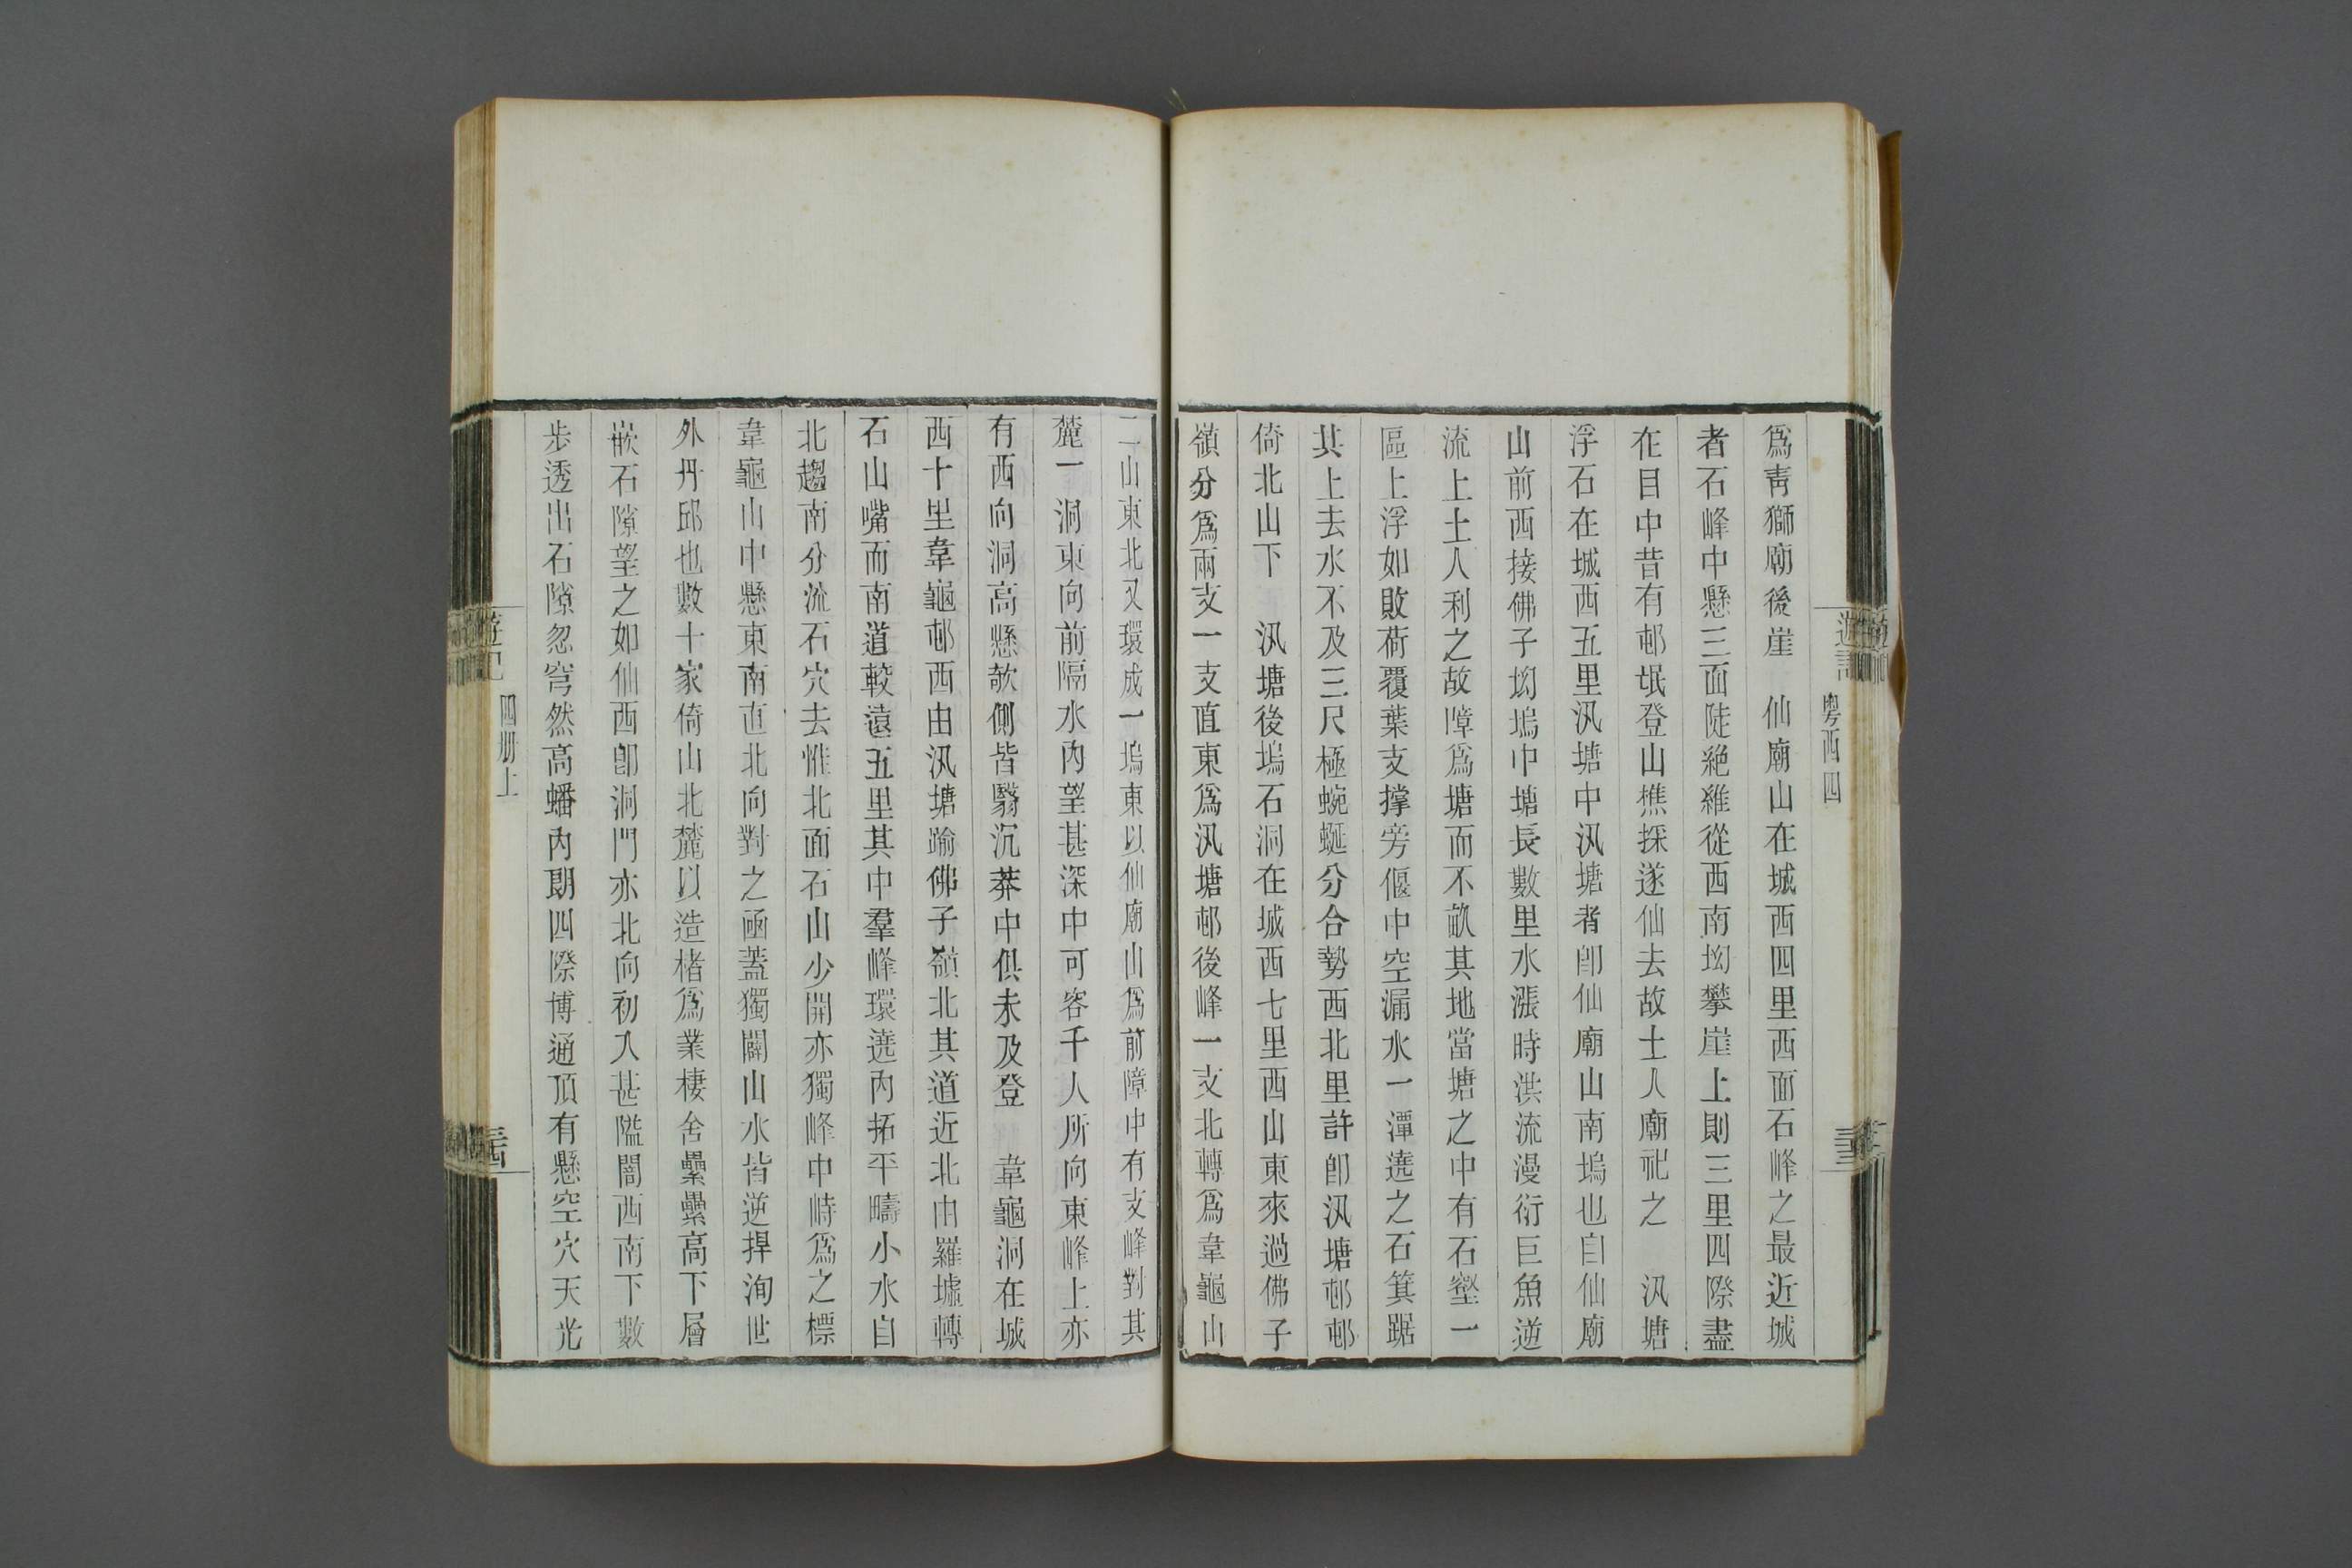 爲靑獅廟後崖　仙廟山在城西四里西面石峰之最近城
者石峰中懸三面陡絶雖從西南坳攀崖上則三里四際盡
在目中昔有邨氓登山樵採遂仙去故土人廟祀之　汎塘
浮石在城西五里汎塘中汎塘者卽仙廟山南塢也自仙廟
山前西接佛子坳塢中塘長數里水漲時洪流漫衍巨魚逆
流上土人利之故障爲塘而不畝其地當塘之中有石壑一
區上浮如敗荷覆葉支撐旁偃中空漏水一潭遶之石箕踞
其上去水不及三尺極蜿蜒分合勢西北里許卽汎塘邨邨
倚北山下　汎塘後塢石洞在城西七里西山東來過佛子
嶺分爲兩支一支直東爲汎塘邨後峰一支北轉爲韋龜山
二山東北又環成一塢東以仙廟山爲前障中有支峰對其
麓一洞東向前隔水內望甚深中可容千人所向東峰上亦
有西向洞高懸欹側皆翳沉莽中俱未及登　韋龜洞在城
西十里韋龜邨西由汎塘踰佛子嶺北其道近北由羅墟轉
石山嘴而南道較遠五里其中羣峰環遶內拓平疇小水自
北趨南分流石穴去惟北面石山少開亦獨峰中峙爲之標
韋龜山中懸東南直北向對之函蓋獨闢山水皆逆捍洵世
外丹邱也數十家倚山北麓以造楮爲業棲舍纍纍高下層
嵌石隙望之如仙西卽洞門亦北向初入甚隘闇西南下數
步透出石隙忽穹然高蟠內朗四際博通頂有懸空穴天光
粤西四
遊記
四册上